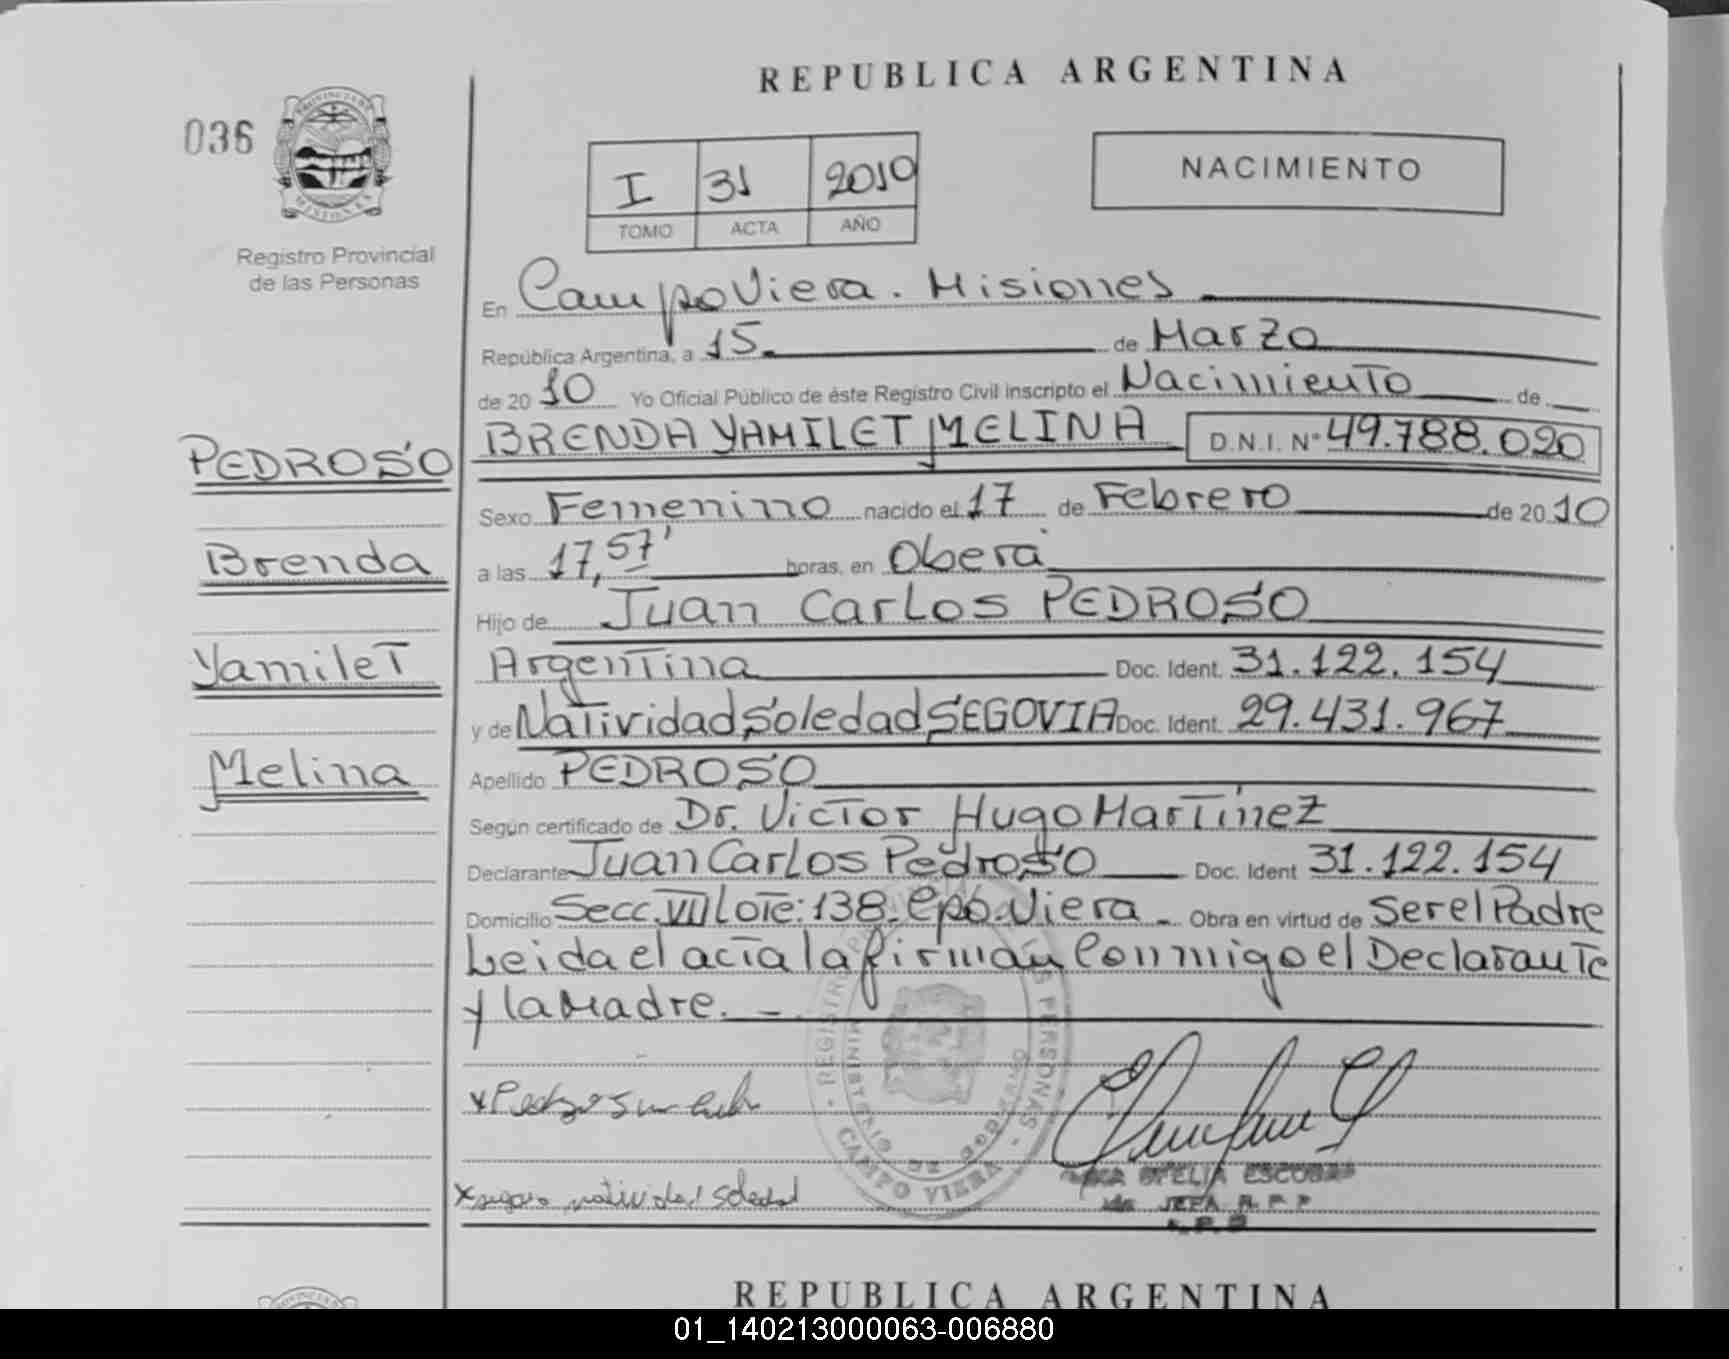 REPUBLICA ARGENTINA
036
PROVINCIA DE MISIONES
Registro Provincial
de las Personas
I 31 2010
TOMO ACTA AÑO
NACIMIENTO
En Campo Viera. Misiones
República Argentina, a 15 de Marzo
de 2010 Yo Oficial Público de éste Registro Civil inscripto el Nacimiento de
BRENDA YAMILET MELINA D.N.I. Nº 49.788.020
PEDROSO
Brenda
Yamilet
Melina
Sexo Femenino nacido el 17 de Febrero de 2010
a las 17,57' horas, en Oberá
Hijo de Juan Carlos PEDROSO
Argentina Doc. Ident. 31.122.154
y de Natividad Soledad SEGOVIA Doc. Ident. 29.431.967
Apellido PEDROSO
Según certificado de Dr. Victor Hugo Martínez
Declarante Juan Carlos Pedroso Doc. Ident 31.122.154
Domicilio Secc. VII Lote: 138. Cpo. Viera - Obra en virtud de Ser el Padre
Leida el acta la firman Conmigo el Declarante
y la Madre. - .
REGISTRO PROVINCIAL DE LAS PERSONAS - CAMPO VIERA -
MINISTERIO DE GOBIERNO
x natividad soledad
OFELIA ESCOBAR
JEFA R. P. P
REPUBLICA ARGENTINA
01_140213000063-006880